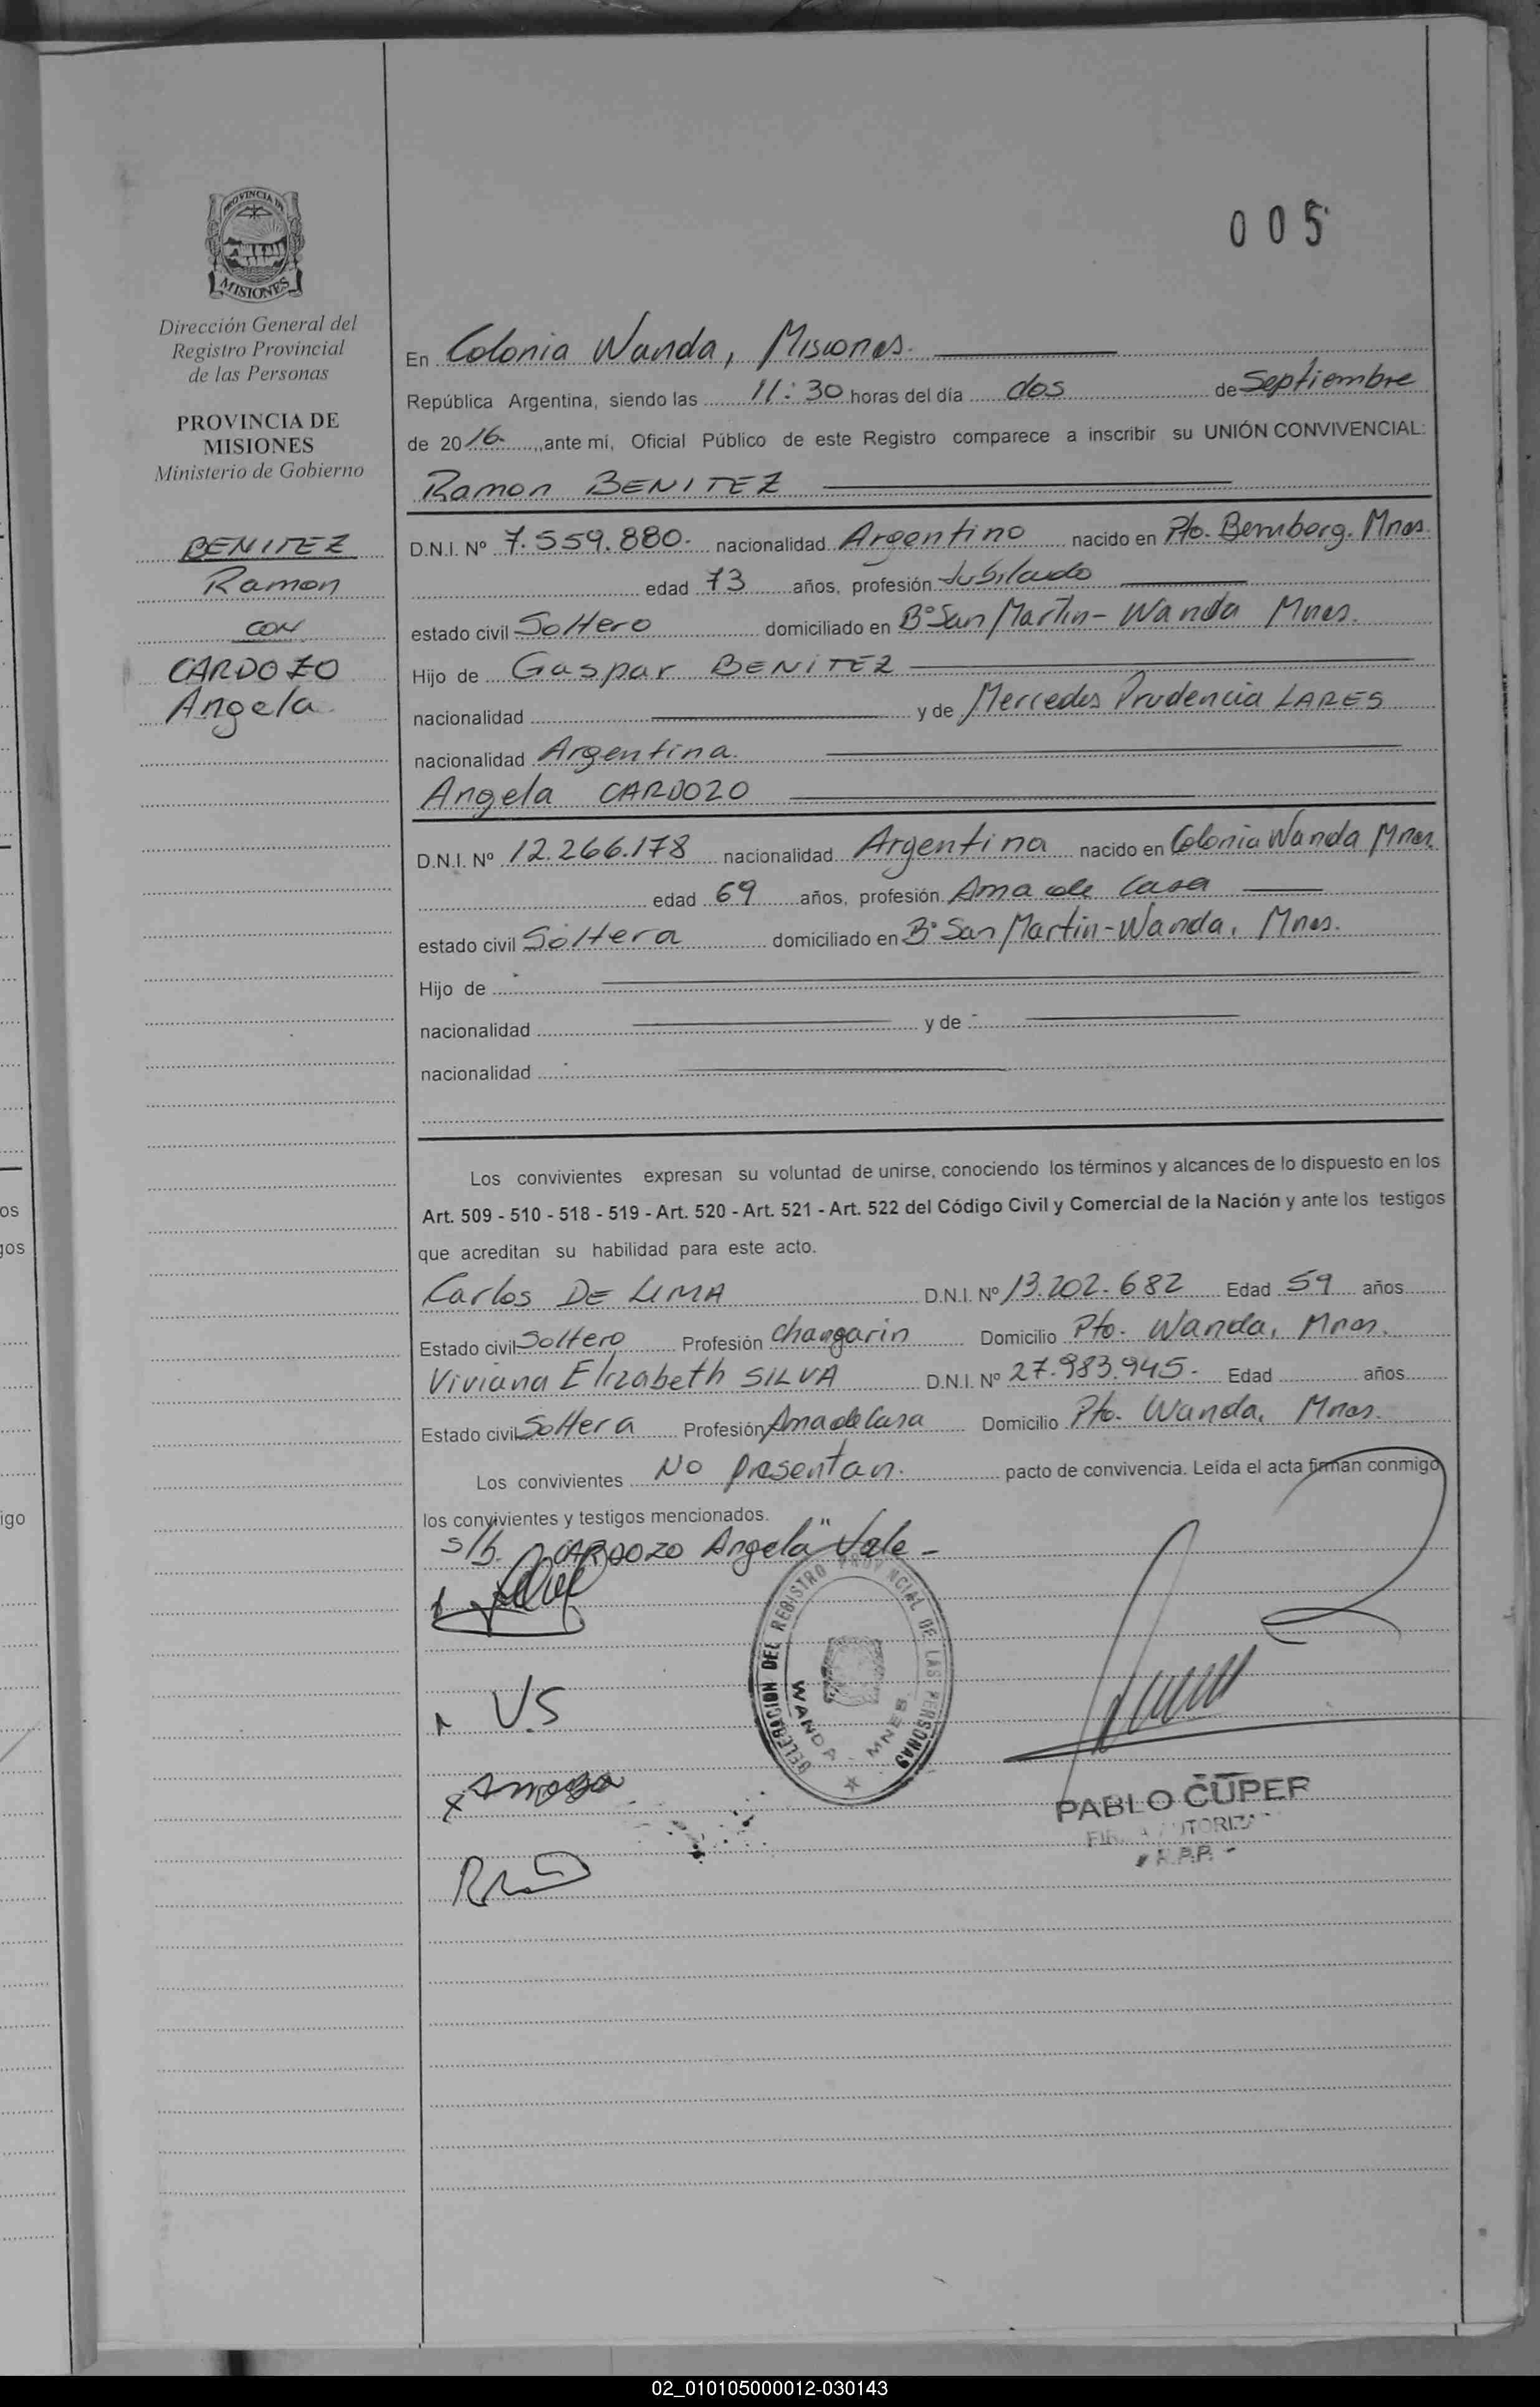 005
PROVINCIA DE
MISIONES
Dirección General del
Registro Provincial
de las Personas
PROVINCIA DE
MISIONES
Ministerio de Gobierno
BENITEZ
Ramon
CON
CARDOZO
Angela
En Colonia Wanda, Misiones.
República Argentina, siendo las 11:30 horas del día dos de Septiembre
de 2016 ante mí, Oficial Público de este Registro comparece a inscribir su UNIÓN CONVIVENCIAL:
Ramon BENITEZ
D.N.I. Nº 7.559.880. nacionalidad Argentino nacido en Pto. Bemberg. Mnes.
edad 73 años, profesión Jubilado
estado civil Soltero domiciliado en Bº San Martin - Wanda Mnes.
Hijo de Gaspar BENITEZ
nacionalidad y de Mercedes Prudencia LARES
nacionalidad Argentina.
Angela CARDOZO
D.N.I. Nº 12.266.178 nacionalidad Argentina nacido en Colonia Wanda Mnes.
edad 69 años, profesión Ama de Casa
estado civil Soltera domiciliado en Bº San Martin - Wanda, Mnes.
Hijo de
nacionalidad y de
nacionalidad
Los convivientes expresan su voluntad de unirse, conociendo los términos y alcances de lo dispuesto en los
Art. 509 - 510 - 518 - 519 - Art. 520 - Art. 521 - Art. 522 del Código Civil y Comercial de la Nación y ante los testigos
que acreditan su habilidad para este acto.
Carlos DE LIMA D.N.I. Nº 13.202.682 Edad 59 años
Estado civil Soltero Profesión Changarin Domicilio Pto. Wanda, Mnes.
Viviana Elizabeth SILVA D.N.I. Nº 27.983.945- Edad años
Estado civil Soltera Profesión Ama de Casa Domicilio Pto. Wanda, Mnes.
Los convivientes No presentan. pacto de convivencia. Leída el acta firman conmigo
los convivientes y testigos mencionados.
s/b. CARDOZO Angela" Vale -
DELEGACION DEL REGISTRO PROVINCIAL DE LAS PERSONAS
WANDA - MNES.
V.S
PABLO CUPER
R.P.P.
os
gos
igo
02_010105000012-030143